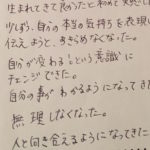 生まれてきて良かったと初めて実感した
少しずつ、自分の本当の気持ちを表現
伝えよう、あきらめなくなった。
自分が変わるという意識に
チェンジできた。
自分の事がわかるようになってきた
無理しなくなった。
人と向き合えるようになってきた